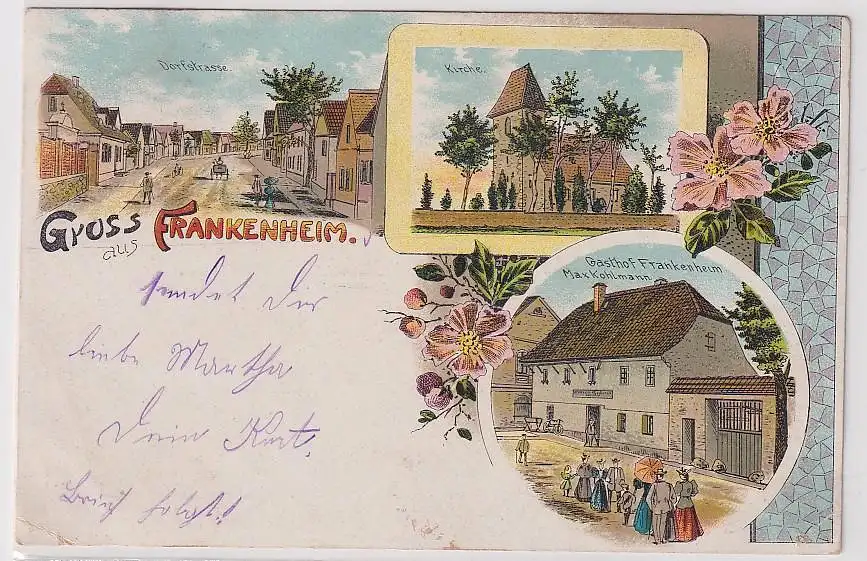 Dorfstrasse.
Kirche.
GRUSS aus FRANKENHEIM.
Gasthof Frankenheim
Max Kohlmann
sendet Dir
liebe Martha
Dein Kurt.
Brief folgt!